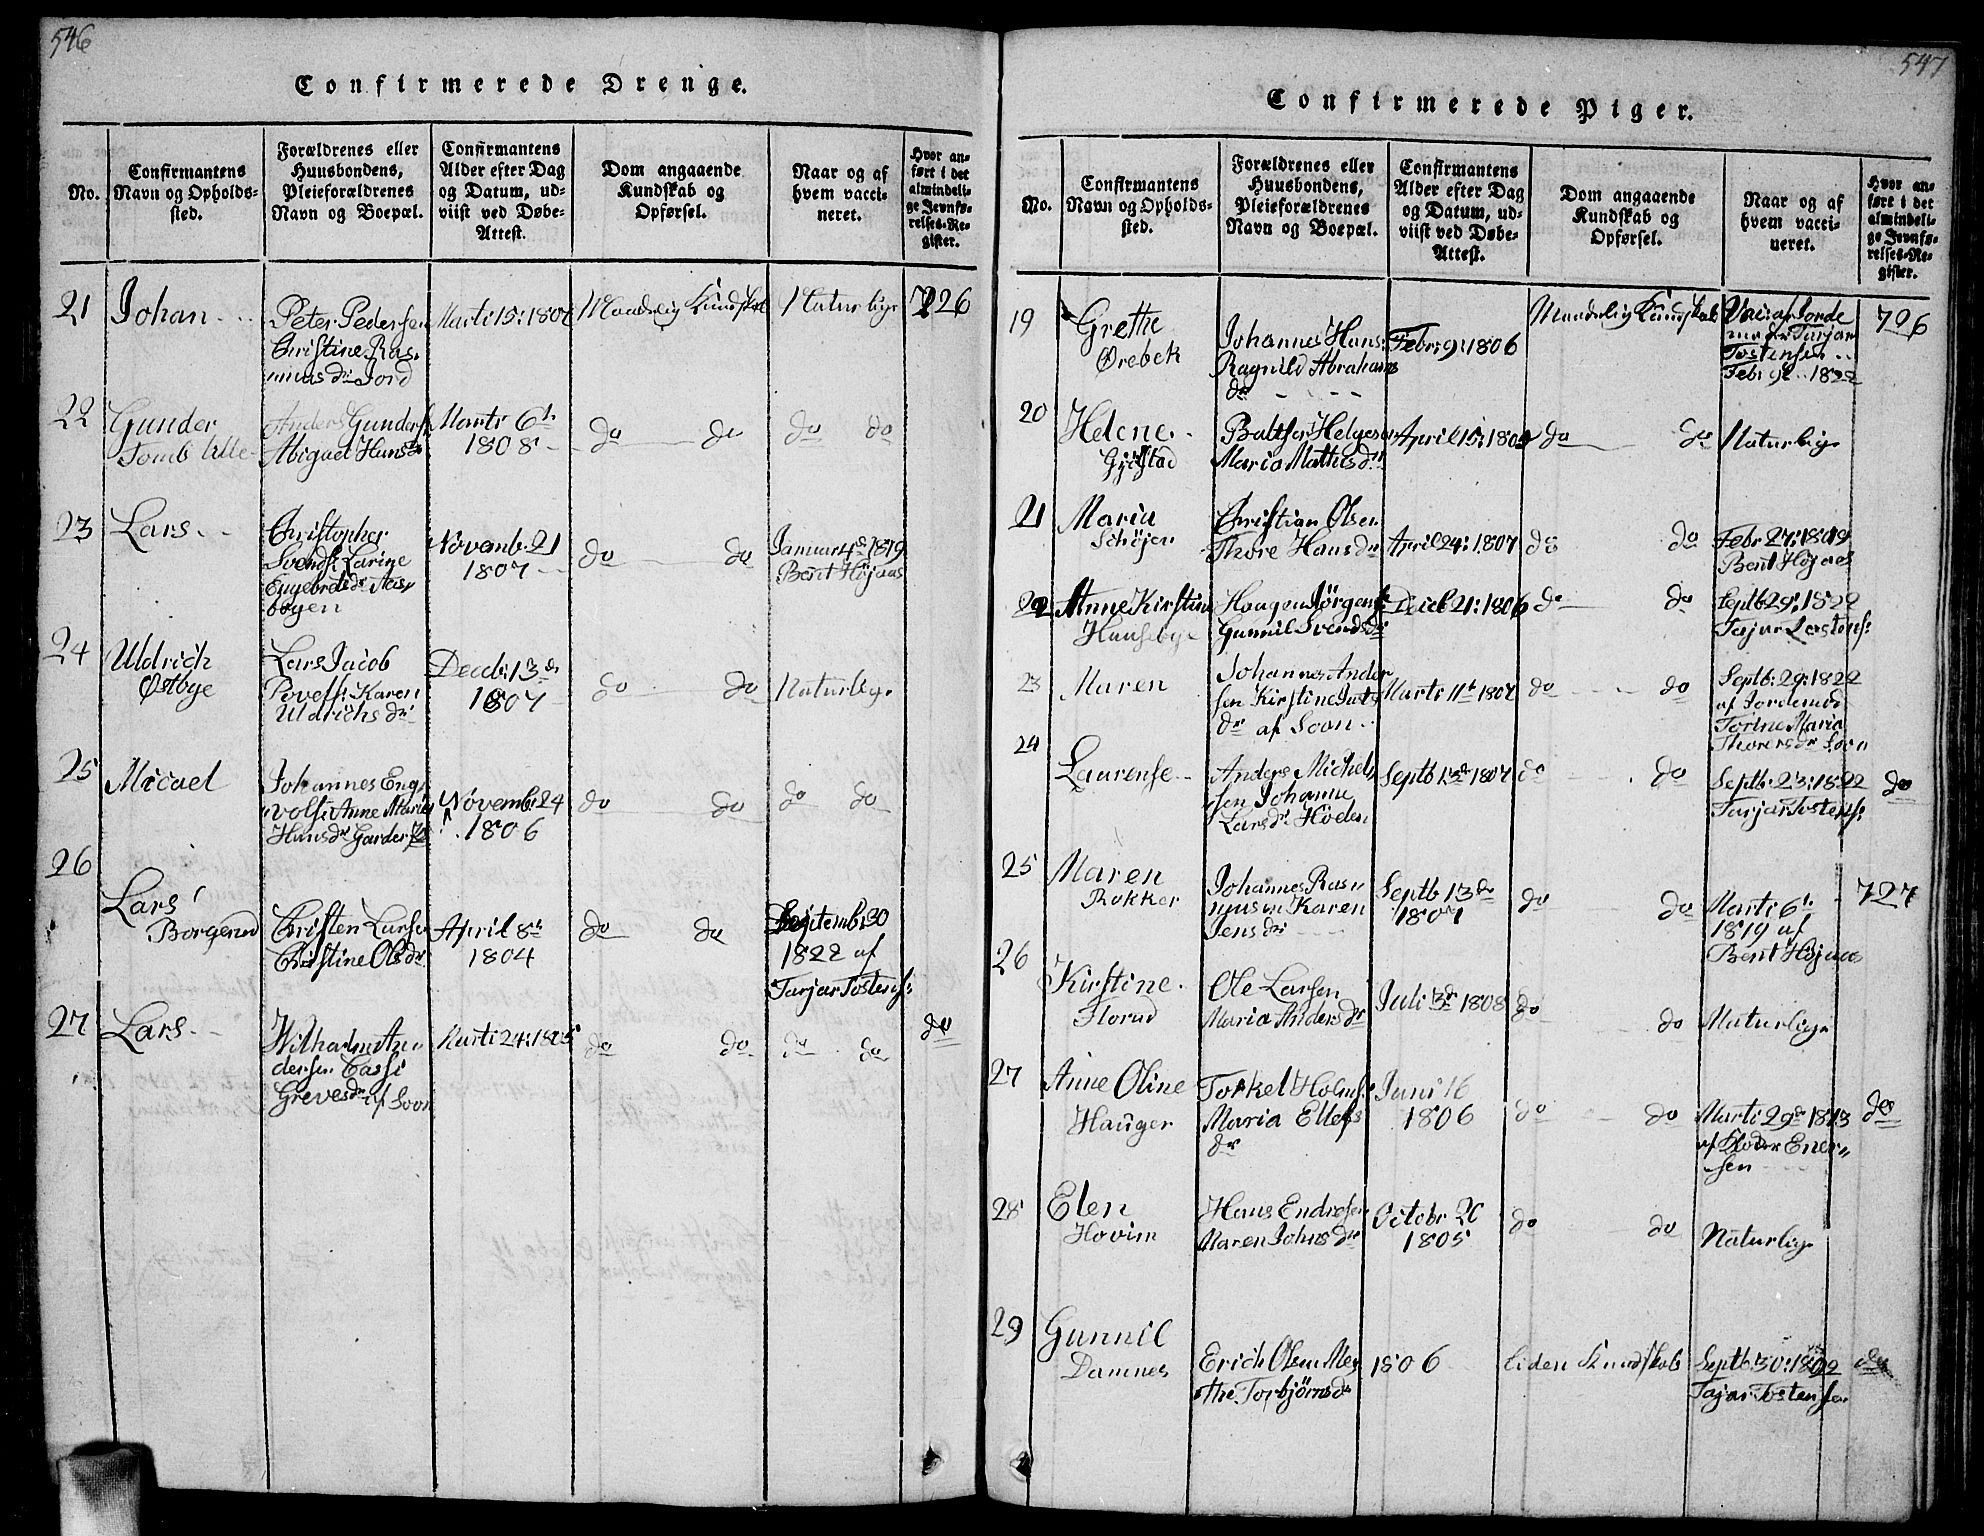 546
Confirmerede Drenge.
No.
Confirmantens
Navn og Opholds-
sted.
Forældrenes eller
Huusbondens,
Pleieforældrenes
Navn og Boepæl.
Confirmantens
Alder efter Dag
og Datum, ud-
viist ved Døbe-
Attest.
Dom angaaende
Kundskab og
Opførsel.
Naar og af
hvem vacci-
neret.
Hvor an-
ført i det
almindeli-
ge Jevnfø-
relses-Re-
gister.
21
Johan
Peter Pedersen
Christine Ras-
mus dr Jord
Marti 15: 1807
Maadelig Kundskab
Naturlige
726
22
Gunder
Tomb
Anders Gunders
Abigael Hansdr
Marti 6t
1808
do do
do do
23
Lars
Christopher
Svends: Larine
bogen
Novemb. 21
1807
do do
Januar 4d 1819
Bent Höjaas
24
Uldrich
Østbye
Lars Jacob
Povels: Karen
Uldrichs dr
Decb: 13de
1807
do do
Naturlige
25
Micael
Johannes Eng-
volfs: Anne Marie
Hansdr Garder
Novemb: 24
1806
do do
do do
26
Lars
Borgerud
Christen Larsen
Christine Olsdr
April 8t
1804
do do
Septemb: 30
1822 af
Tarjar Tostens:
27
Lars
Wilhelm An-
dersen
Grevesdr af Soon
Marti 24: 1805
do do
do do
do
547
Confirmerede Piger.
No.
Confirmantens
Navn og Opholds-
sted.
Forældrenes eller
Huusbondens,
Pleieforældrenes
Navn og Boepæl.
Confirmantens
Alder efter Dag
og Datum, ud-
viist ved Døbe-
Attest.
Dom angaaende
Kundskab og
Opførsel.
Naar og af
hvem vacci-
neret.
Hvor an-
føre i det
almindeli-
ge Jevnfø-
relses-Re-
gister.
19
Grethe
Ørebek
Johannes Hans:
Ragnild Abrahams
dr
Febr: 9: 1806
Maadelig Kundskab
Vac: af Jorde
moder Tarjar
Tostensen
Febr 1822
726
20
Helene
Gjelstad
Balthser Helgesen
Maria Mathis dr
April 15: 180
do do
Naturlig
21
Maria
Schöjen
Christian Olsen
Thore Hansdr
April 24: 1807
do do
Febr 27: 1819
Bent Höjaas
22
Anne Kirstine
Huusebye
Haagen Jörgens:
Gunnil Svends dr
Decb 21: 1806
do do
Septb 29: 1822
Tarjar Tostens:
23
Maren
Johannes Ander
sen Kirstine
dr af Soon
Marti 11t 1807
do do
Septb: 29: 1822
af Jordemod
Torine Maria
Thorersdr Soon
24
Laurense
Anders Michel
sen Johanne
Larsdr Höden
Septb 13de 1807
do do
Septb: 23: 1822
Tarjar Tostens:
do
25
Maren
Rokker
Johannes Ras-
musen Karen
Jens dr
Septb 13de
1807
do do
Marti 6t
1819 af
Bent Höjaas
727
26
Kirstine
Florud
Ole Larsen
Maria Anders dr
Juli 3de 1808
do do
Naturlige
27
Anne Oline
Hauger
Torkel Holms:
Maria Ellefs
dr
Juni 16
1806
do do
Marti 29de 1813
af Ener-
sen
do
28
Elen
Hovim
Hans Endresen
Maren Johns dr
Octobr 20
1805
do do
Naturlig
29
Gunnil
Damnes
Erich Olsen Mar
the Torbjörnsdr
1806
liden Kundskab
Septb: 30:
Tajar Tostensen
do